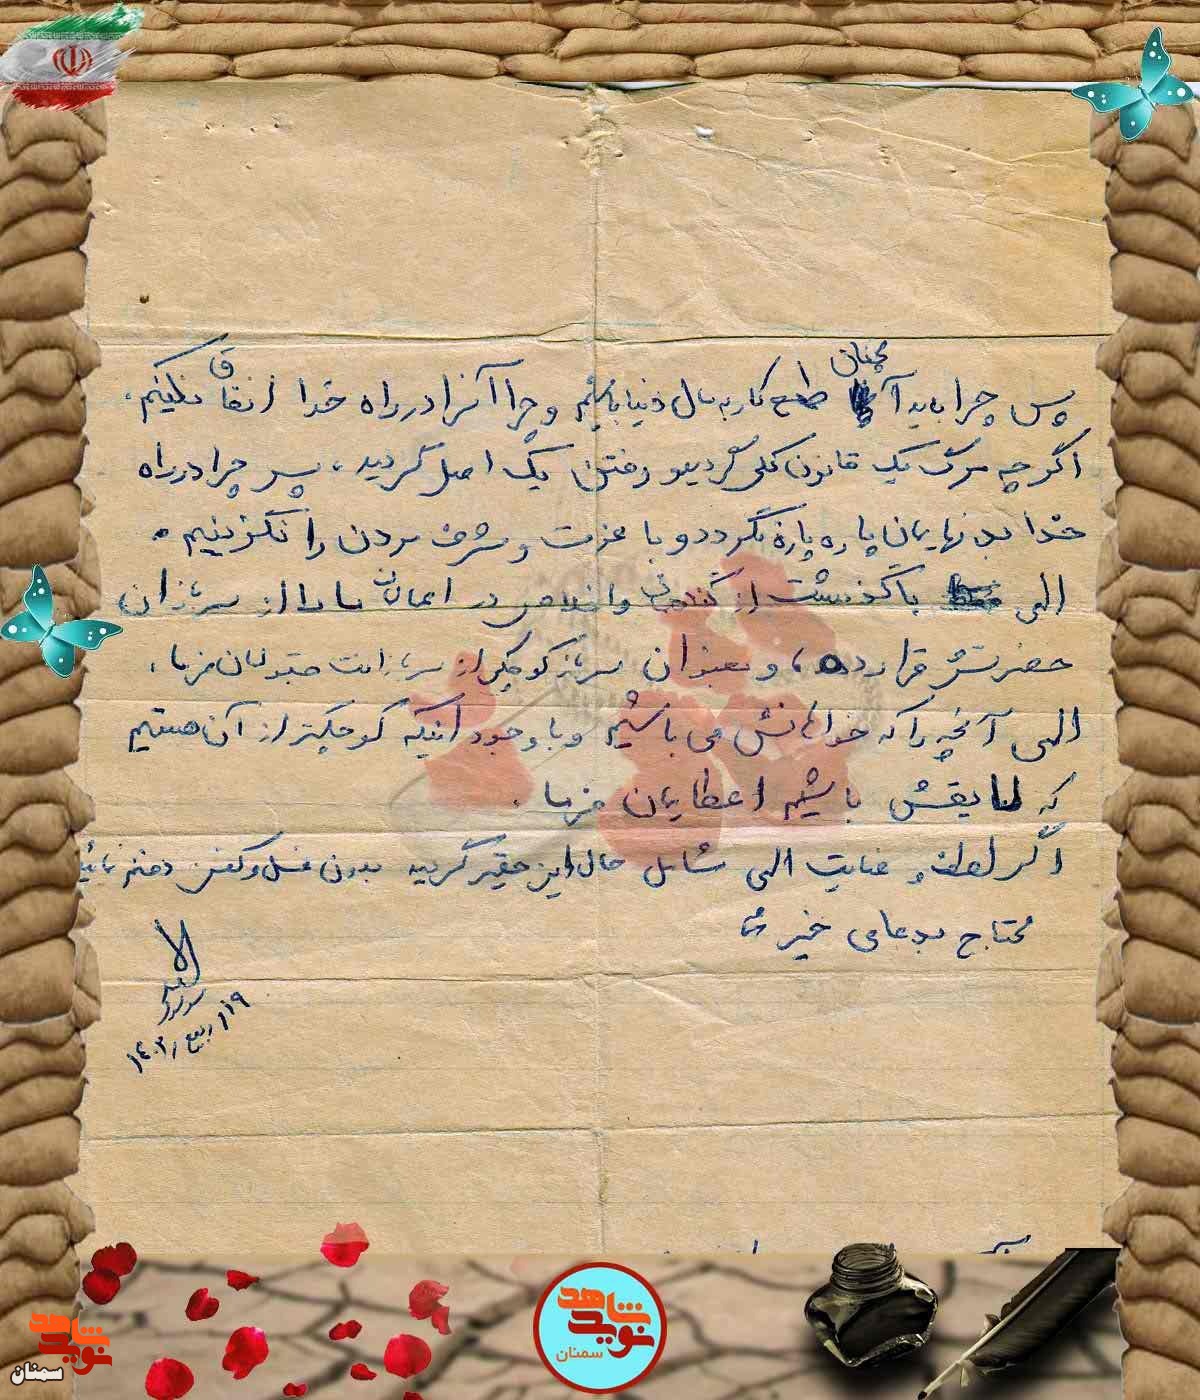 پس چرا باید آنچنان طمع کار به مال دنیا باشیم و چرا آنرا در راه خدا انفاق نکنیم.
اگر چه مرگ یک قانون کلی گردید و رفتن یک اصل گردید، پس چرا در راه
خدا بدنهایمان پاره پاره نگردد و با عزت و شرف مردن را نگزینیم.
الهی با گذشت از گناهانم و اخلاص در اعمالمان ما را از سربازان
حضرتش قرار ده، و بعنوان سرباز کوچکی از سربازانت قبولمان فرما.
الهی آنچه را که خواهانش می باشیم و با وجود اینکه کوچکتر از آن هستیم
که لایقش باشیم اعطایمان فرما.
اگر لطف و عنایت الهی شامل حال این حقیر گردید بدون غسل و کفن دفنم نمائید
محتاج بدعای خیر
۱۹ ربیع ۱۴۰۳
شاهد
نوید
سمنان
شاهد
نوید
سمنان